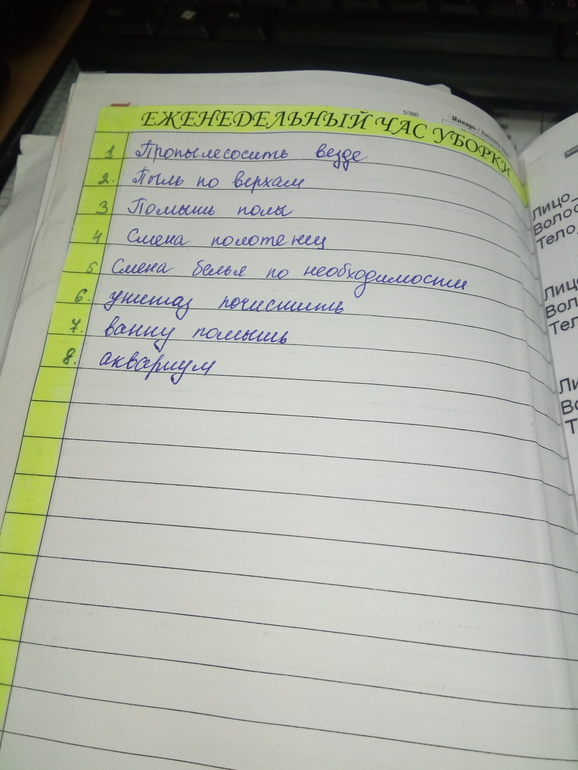 ЕЖЕНЕДЕЛЬНЫЙ ЧАС УБОРКИ
5/360
Январь
1 Пропылесосить везде
2. Пыль по верхам
3 Помыть полы
4 Смена полотенец
5 Смена белья по необходимости
6. унитаз почистить
7. ванну помыть
8. аквариум
Лицо
Тело